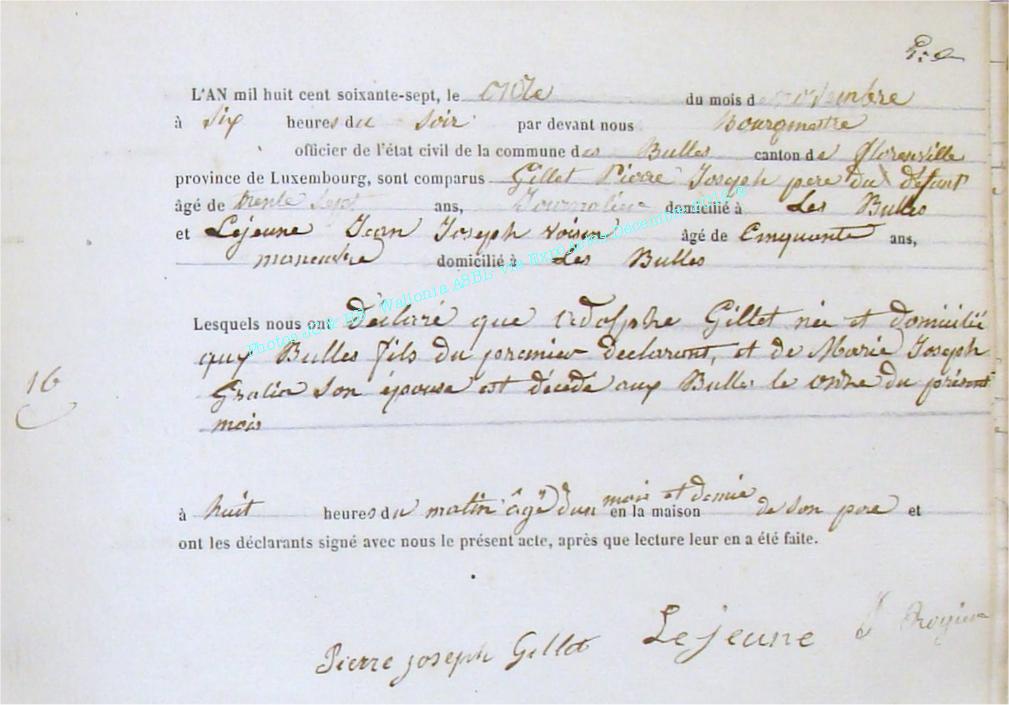 L'AN mil huit cent soixante-sept, le onze du mois de novembre
à six heures du soir par devant nous Bourgmestre
officier de l'état civil de la commune des Bulles canton de Florenville
province de Luxembourg, sont comparus Gillet Pierre Joseph pere du défunt
âgé de trente sept ans, Journalier domicilié à Les Bulles
et Lejeune Jean Joseph voisin âgé de Cinquante ans,
domicilié à Les Bulles
Lesquels nous ont déclaré que Adolphe Gillet née et domicilié
aux Bulles fils du premier declarant, et de Marie Joseph
son épouse est décédé aux Bulles le onze du présent
16
mois
à huit heures du matin âgé d'un mois et demie en la maison de son pere et
ont les déclarants signé avec nous le présent acte, après que lecture leur en a été faite.
Pierre Joseph Gillet Lejeune